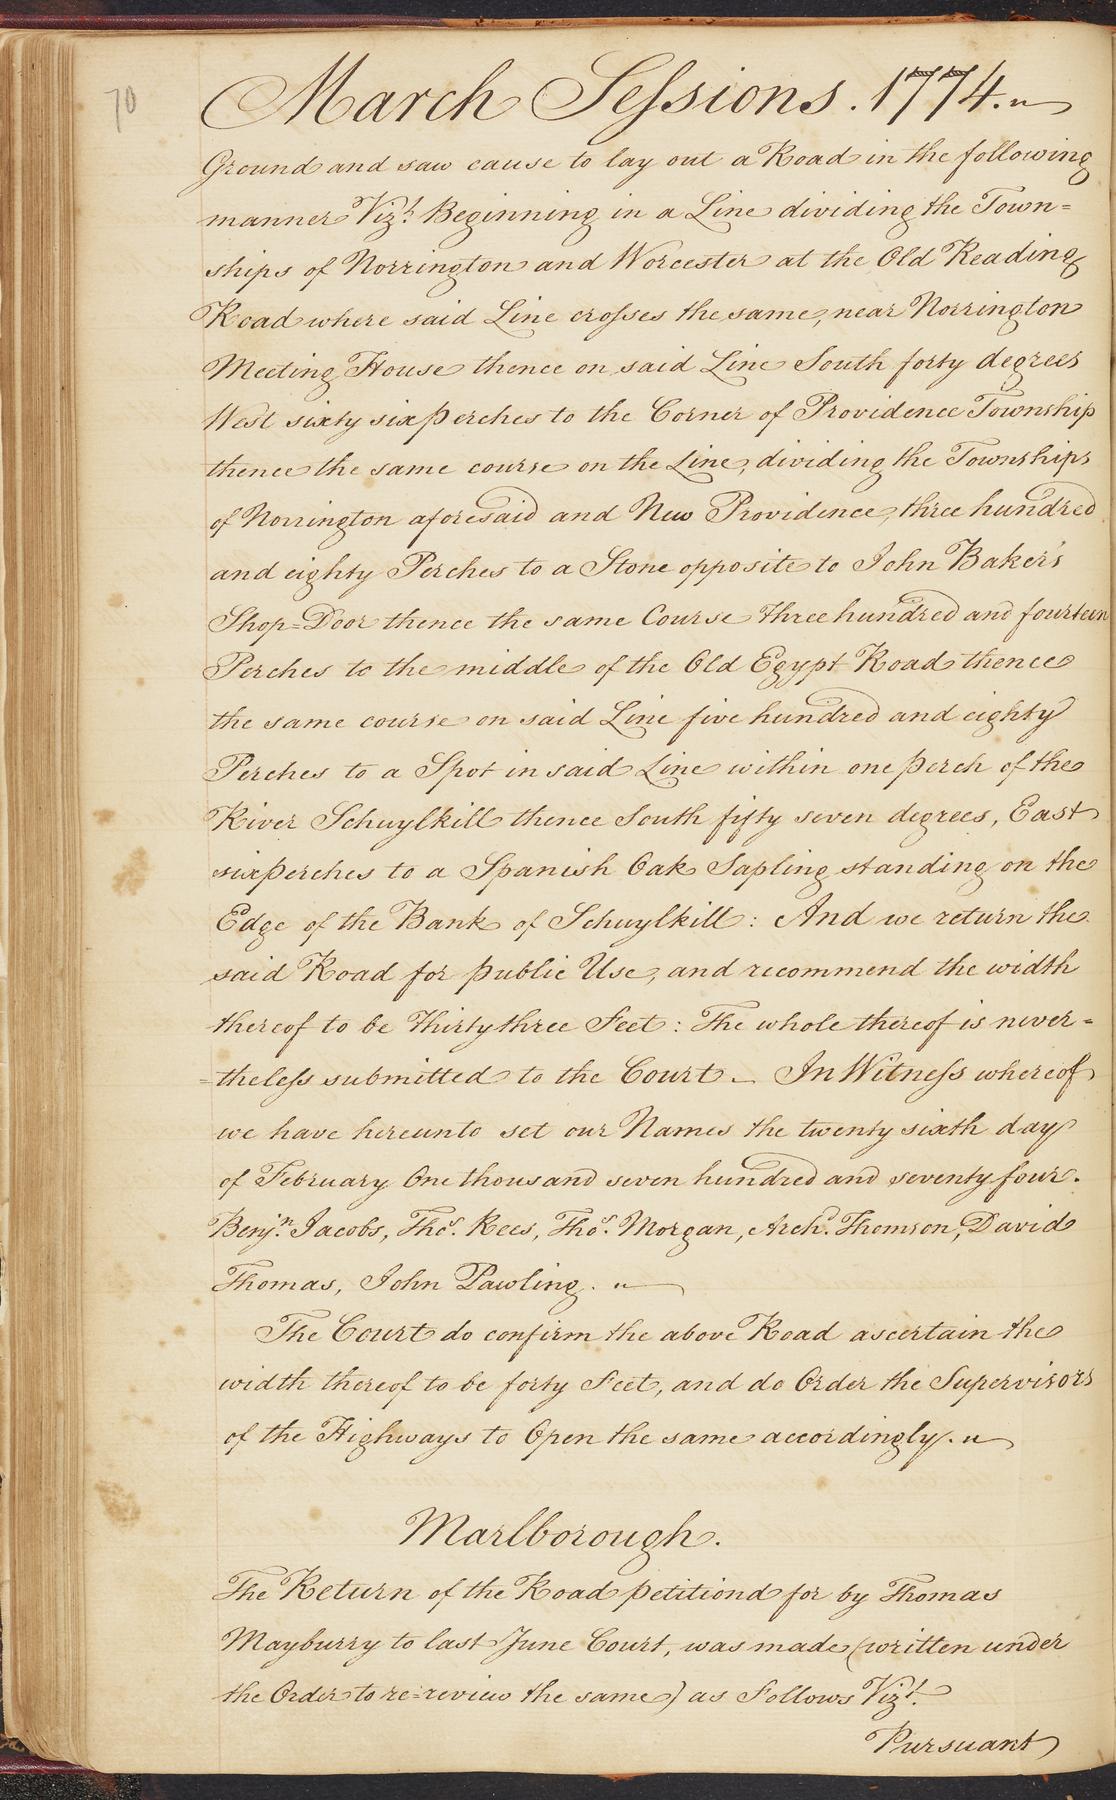 70
March Sessions. 1774.
Ground and saw cause to lay out a Road in the following
manner Vizt. Beginning in a Line dividing the Town=
ships of Norrington and Worcester at the Old Reading
Road where said Line crosses the same, near Norrington
Meeting House thence on said Line South forty degrees
West sixty six perches to the Corner of Providence Township
thence the same course on the Line, dividing the Townships
of Norrington aforesaid and New Providence, three hundred
and eighty Perches to a Stone opposite to John Baker's
Shop=Door thence the same Course three hundred and fourteen
Perches to the middle of the Old Egypt Road thence
the same course on said Line five hundred and eighty
Perches to a Spot in said Line within one perch of the
River Schuylkill thence South fifty seven degrees, East
six perches to a Spanish Oak Sapling standing on the
Edge of the Bank of Schuylkill: And we return the
said Road for public Use, and recommend the width
thereof to be Thirty three Feet: The whole thereof is never=
=theless submitted to the Court – In Witness whereof
we have hereunto set our Names the twenty sixth day
of February One thousand seven hundred and seventy four.
Benjn. Jacobs, Thos. Rees, Thos. Morgan, Archd. Thomson, David
Thomas, John Pawling.
The Court do confirm the above Road ascertain the
width thereof to be forty Feet, and do Order the Supervisors
of the Highways to Open the same accordingly.
Marlborough.
The Return of the Road petitiond for by Thomas
Mayburry to last June Court, was made (written under
the Order to re=review the same) as Follows Vizt.
Pursuant